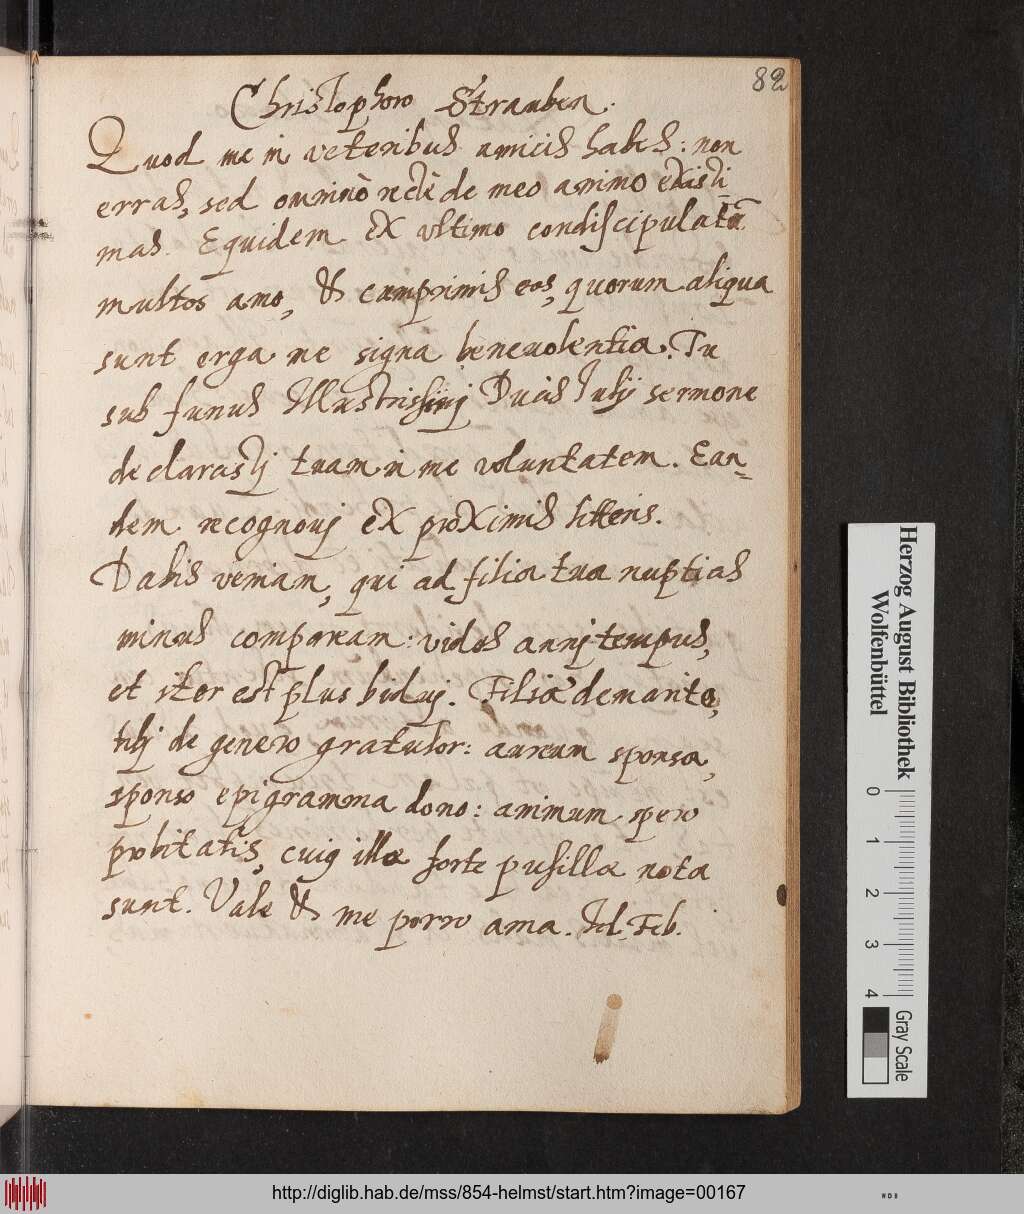 82
Christophoro Strauben.
Quod me in veteribus amicis habes: non
erras, sed omninò rectè de meo animo existi
mas. Equidem ex ultimo condiscipulatū
multos amo, & cumprimis eos, quorum aliqua
sunt erga me signa benevolentiæ. Tu
sub funus Illustrissimj Ducis Julij sermone
declarastj tuam in me voluntatem. Ean-
dem recognovj ex proximis litteris.
Dabis veniam, qui ad filiæ tuæ nuptias
minus compaream: vides annj tempus,
et iter est plus biduj. Filiæ de marito,
tibj de genero gratulor: aureum sponsæ,
sponso epigramma dono: animum spero
probitatis, cuiq illæ forte pusillæ nota
sunt. Vale & me porro ama. Id. Feb.
Herzog August Bibliothek
Wolfenbüttel
0 1 2 3 4
Gray Scale
http://diglib.hab.de/mss/854-helmst/start.htm?image=00167
WDB